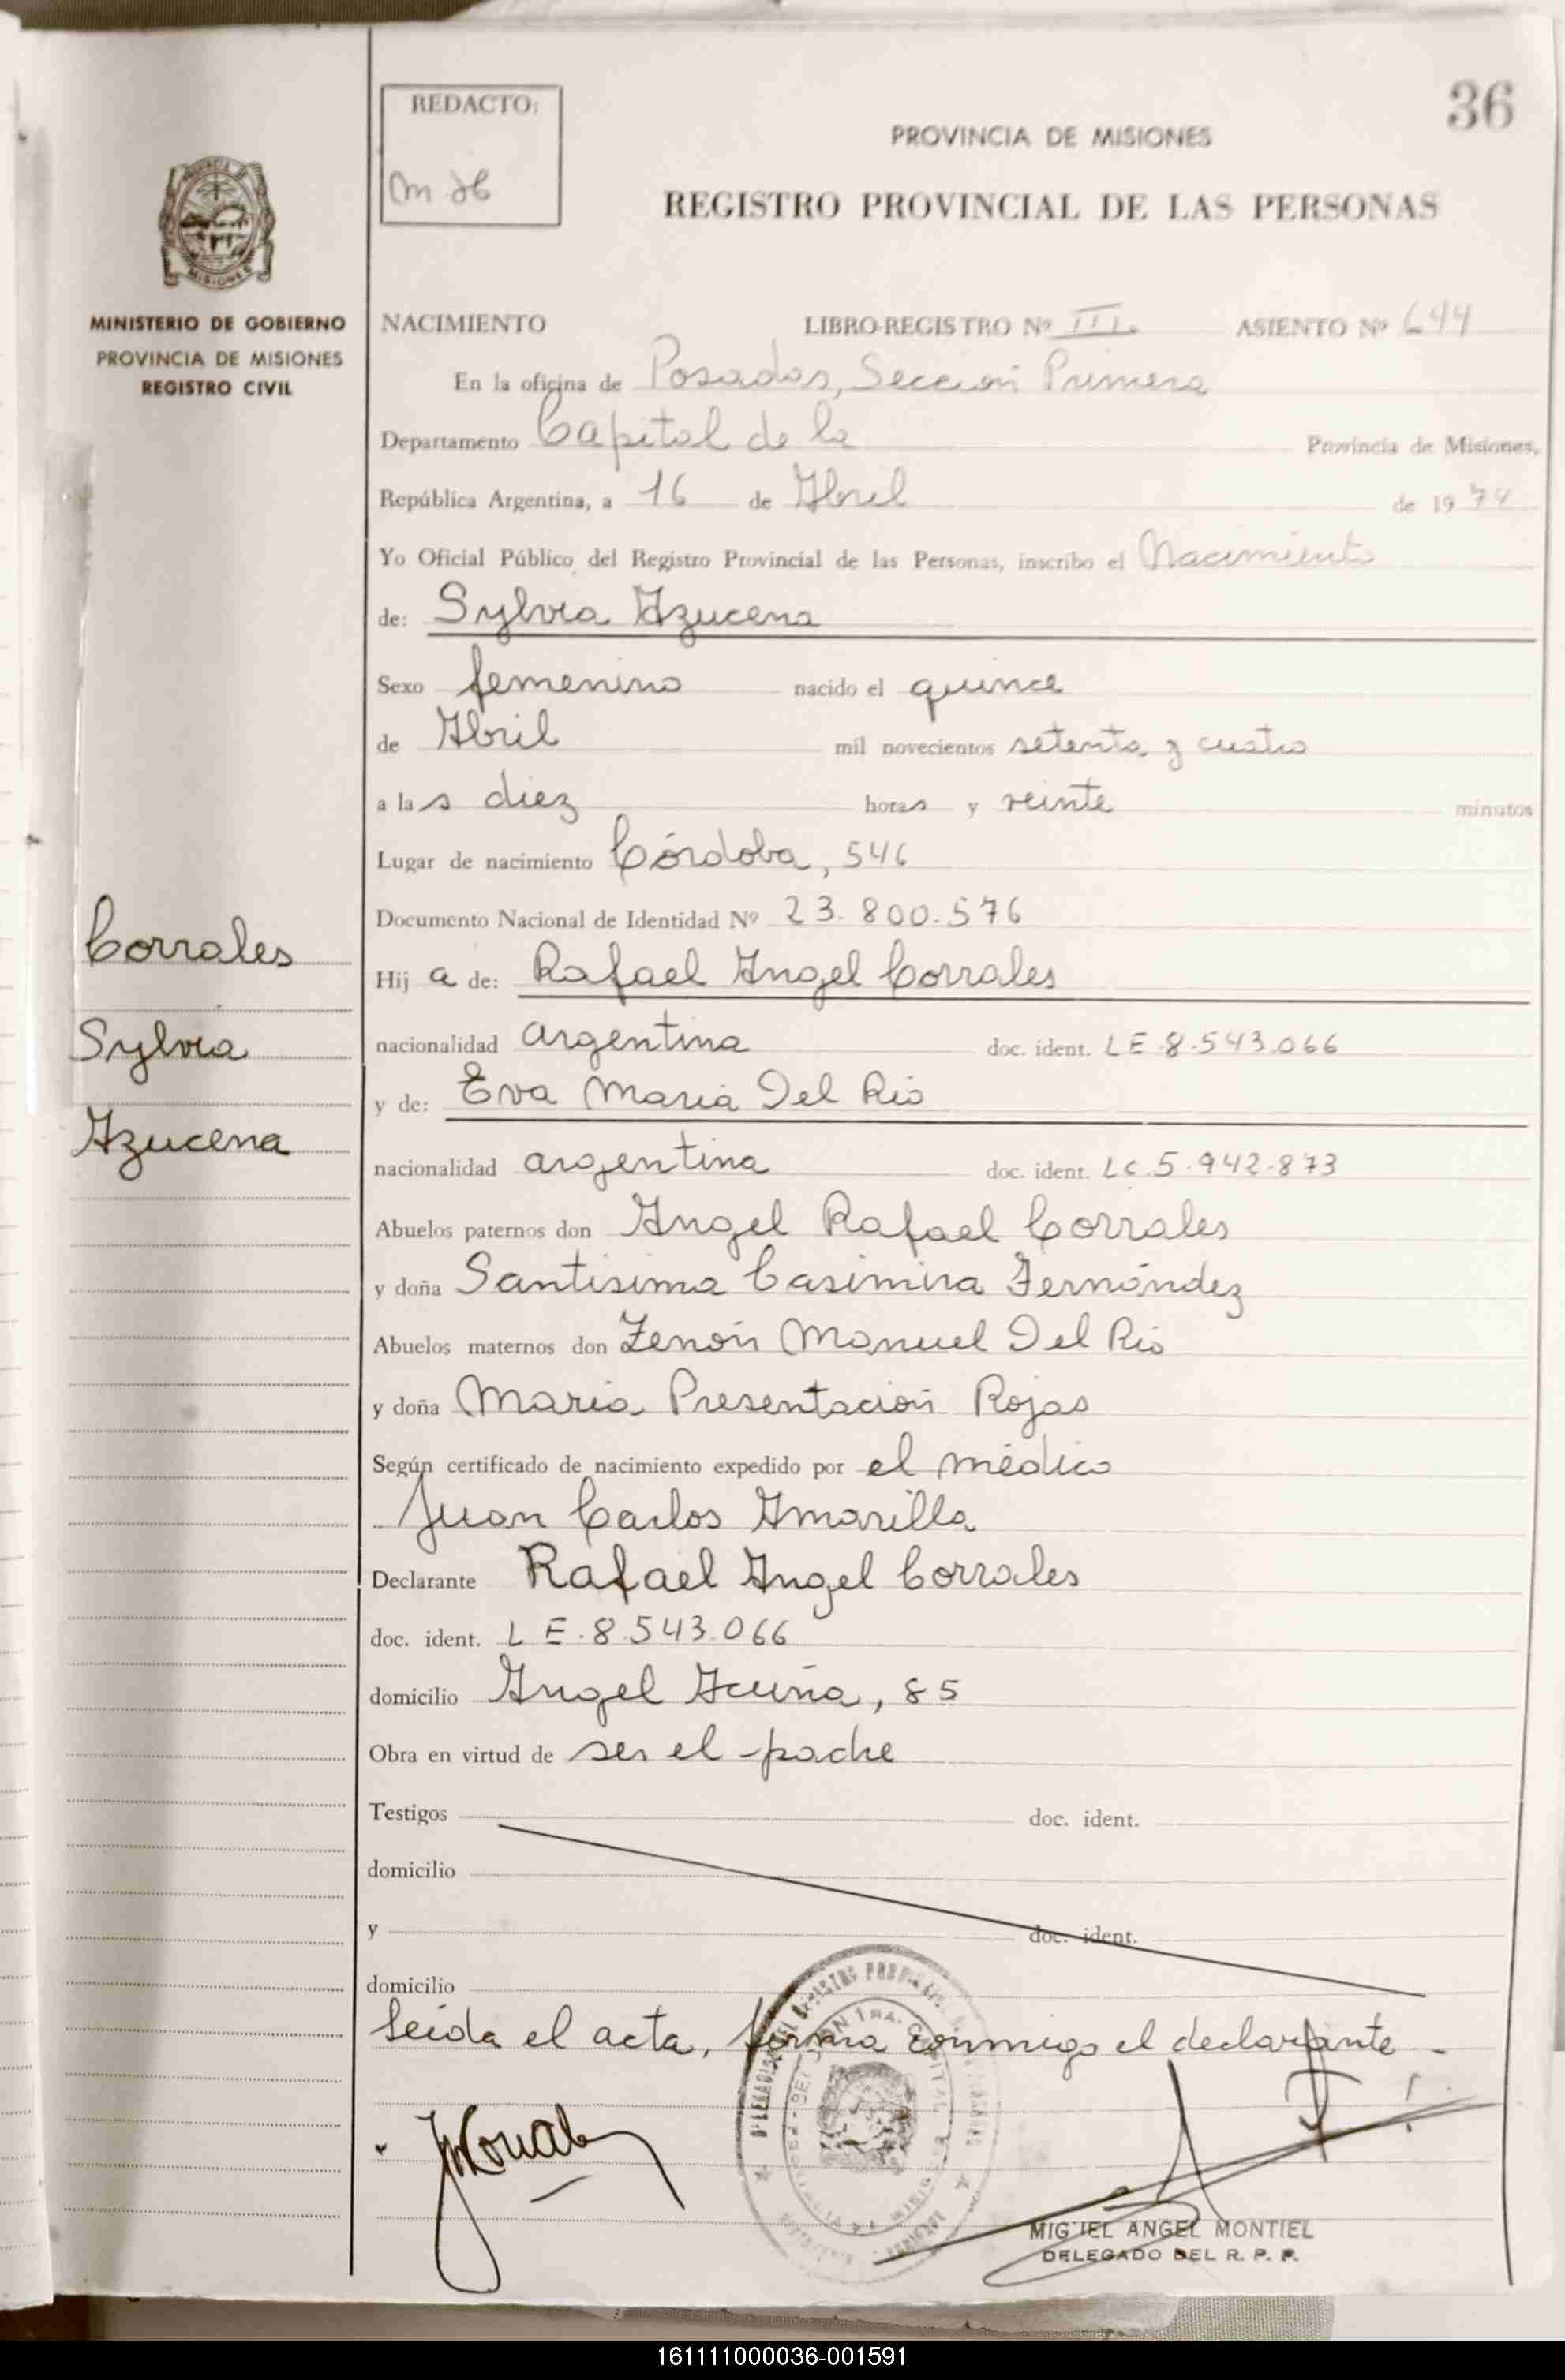 36
REDACTO:
PROVINCIA DE MISIONES
REGISTRO PROVINCIAL DE LAS PERSONAS
MISIONES
MINISTERIO DE GOBIERNO
PROVINCIA DE MISIONES
REGISTRO CIVIL
NACIMIENTO LIBRO-REGISTRO Nº III. ASIENTO Nº 644
En la oficina de Posadas, Sección Primera
Departamento Capital de la Provincia de Misiones,
República Argentina, a 16 de Abril de 1974
Yo Oficial Público del Registro Provincial de las Personas, inscribo el Nacimiento
de: Sylvia Azucena
Sexo femenino nacido el quince
de Abril mil novecientos setenta y cuatro
a las diez horas y veinte minutos
Lugar de nacimiento Córdoba, 546
Documento Nacional de Identidad Nº 23.800.576
Corrales
Sylvia
Azucena
Hija de: Rafael Angel Corrales
nacionalidad argentina doc. ident. LE.8.543.066
y de: Eva María Del Río
nacionalidad argentina doc. ident. LC.5.942.873
Abuelos paternos don Angel Rafael Corrales
y doña Santisima Casimira Fernández
Abuelos maternos don Zenón Manuel Del Río
y doña María Presentación Rojas
Según certificado de nacimiento expedido por el médico
Juan Carlos Amarilla
Declarante Rafael Angel Corrales
doc. ident. LE.8.543.066
domicilio Angel Acuña, 85
Obra en virtud de ser el padre
Testigos doc. ident.
domicilio
y doc. ident.
domicilio
Leída el acta, firma conmigo el declarante.-
MIGUEL ANGEL MONTIEL
DELEGADO DEL R. P. P.
161111000036-001591